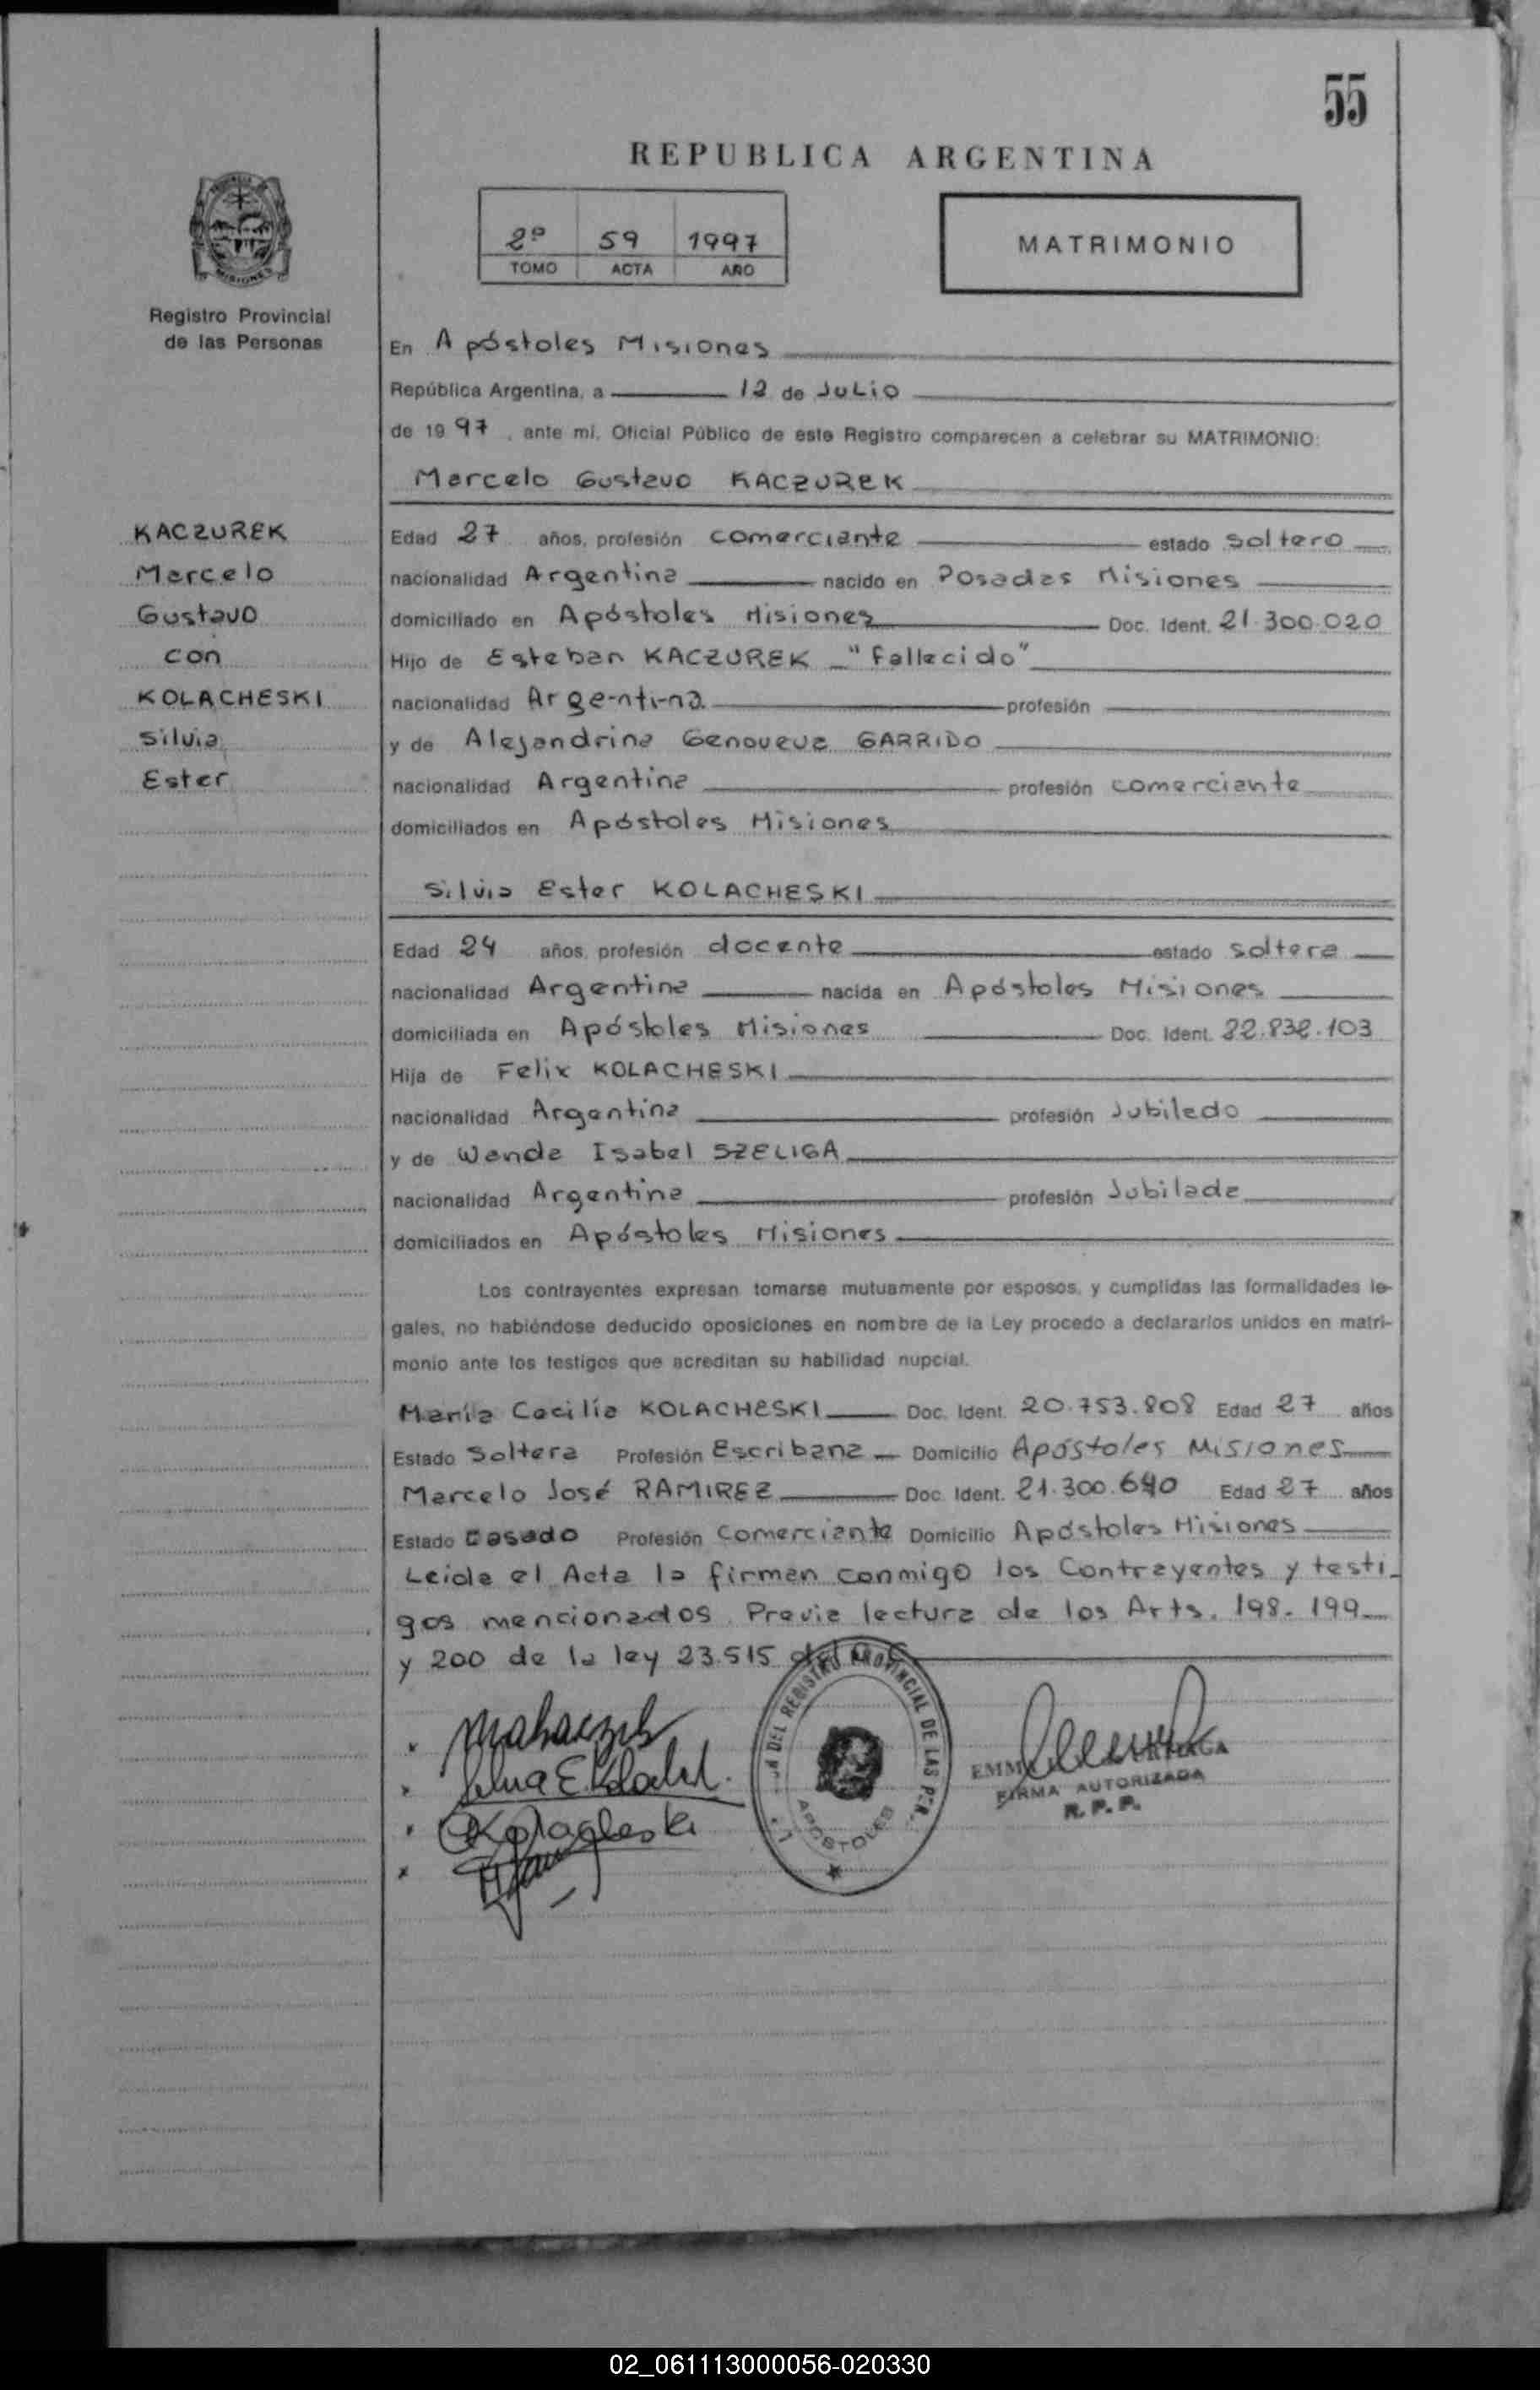 55
REPUBLICA ARGENTINA
2º 59 1997
TOMO ACTA AÑO
MATRIMONIO
MISIONES
Registro Provincial
de las Personas
En Apóstoles Misiones
República Argentina, a 12 de Julio
de 1997, ante mí, Oficial Público de este Registro comparecen a celebrar su MATRIMONIO:
Marcelo Gustavo KACZUREK
KACZUREK
Marcelo
Gustavo
con
KOLACHESKI
Silvia
Ester
Edad 27 años, profesión comerciante estado soltero
nacionalidad Argentina nacido en Posadas Misiones
domiciliado en Apóstoles Misiones Doc. Ident. 21.300.020
Hijo de Esteban KACZUREK - "Fallecido"
nacionalidad Argentina profesión
y de Alejandrina Genoveva GARRIDO
nacionalidad Argentina profesión comerciante
domiciliados en Apóstoles Misiones
Silvia Ester KOLACHESKI
Edad 24 años, profesión docente estado soltera
nacionalidad Argentina nacida en Apóstoles Misiones
domiciliada en Apóstoles Misiones Doc. Ident. 22.832.103
Hija de Felix KOLACHESKI
nacionalidad Argentina profesión Jubilado
y de Wanda Isabel SZELIGA
nacionalidad Argentina profesión Jubilada
domiciliados en Apóstoles Misiones
Los contrayentes expresan tomarse mutuamente por esposos, y cumplidas las formalidades le-
gales, no habiéndose deducido oposiciones en nombre de la Ley procedo a declararlos unidos en matri-
monio ante los testigos que acreditan su habilidad nupcial.
María Cecilia KOLACHESKI Doc. Ident. 20.753.808 Edad 27 años
Estado Soltera Profesión Escribana Domicilio Apóstoles Misiones
Marcelo José RAMIREZ Doc. Ident. 21.300.640 Edad 27 años
Estado Casado Profesión Comerciante Domicilio Apóstoles Misiones
Leida el Acta la firman conmigo los Contrayentes y testi-
gos mencionados. Previa lectura de los Arts. 198. 199
y 200 de la ley 23.515 del C.C
DEL REGISTRO PROVINCIAL DE LAS PER
APOSTOLES
FIRMA AUTORIZADA
R. P. P.
02_061113000056-020330